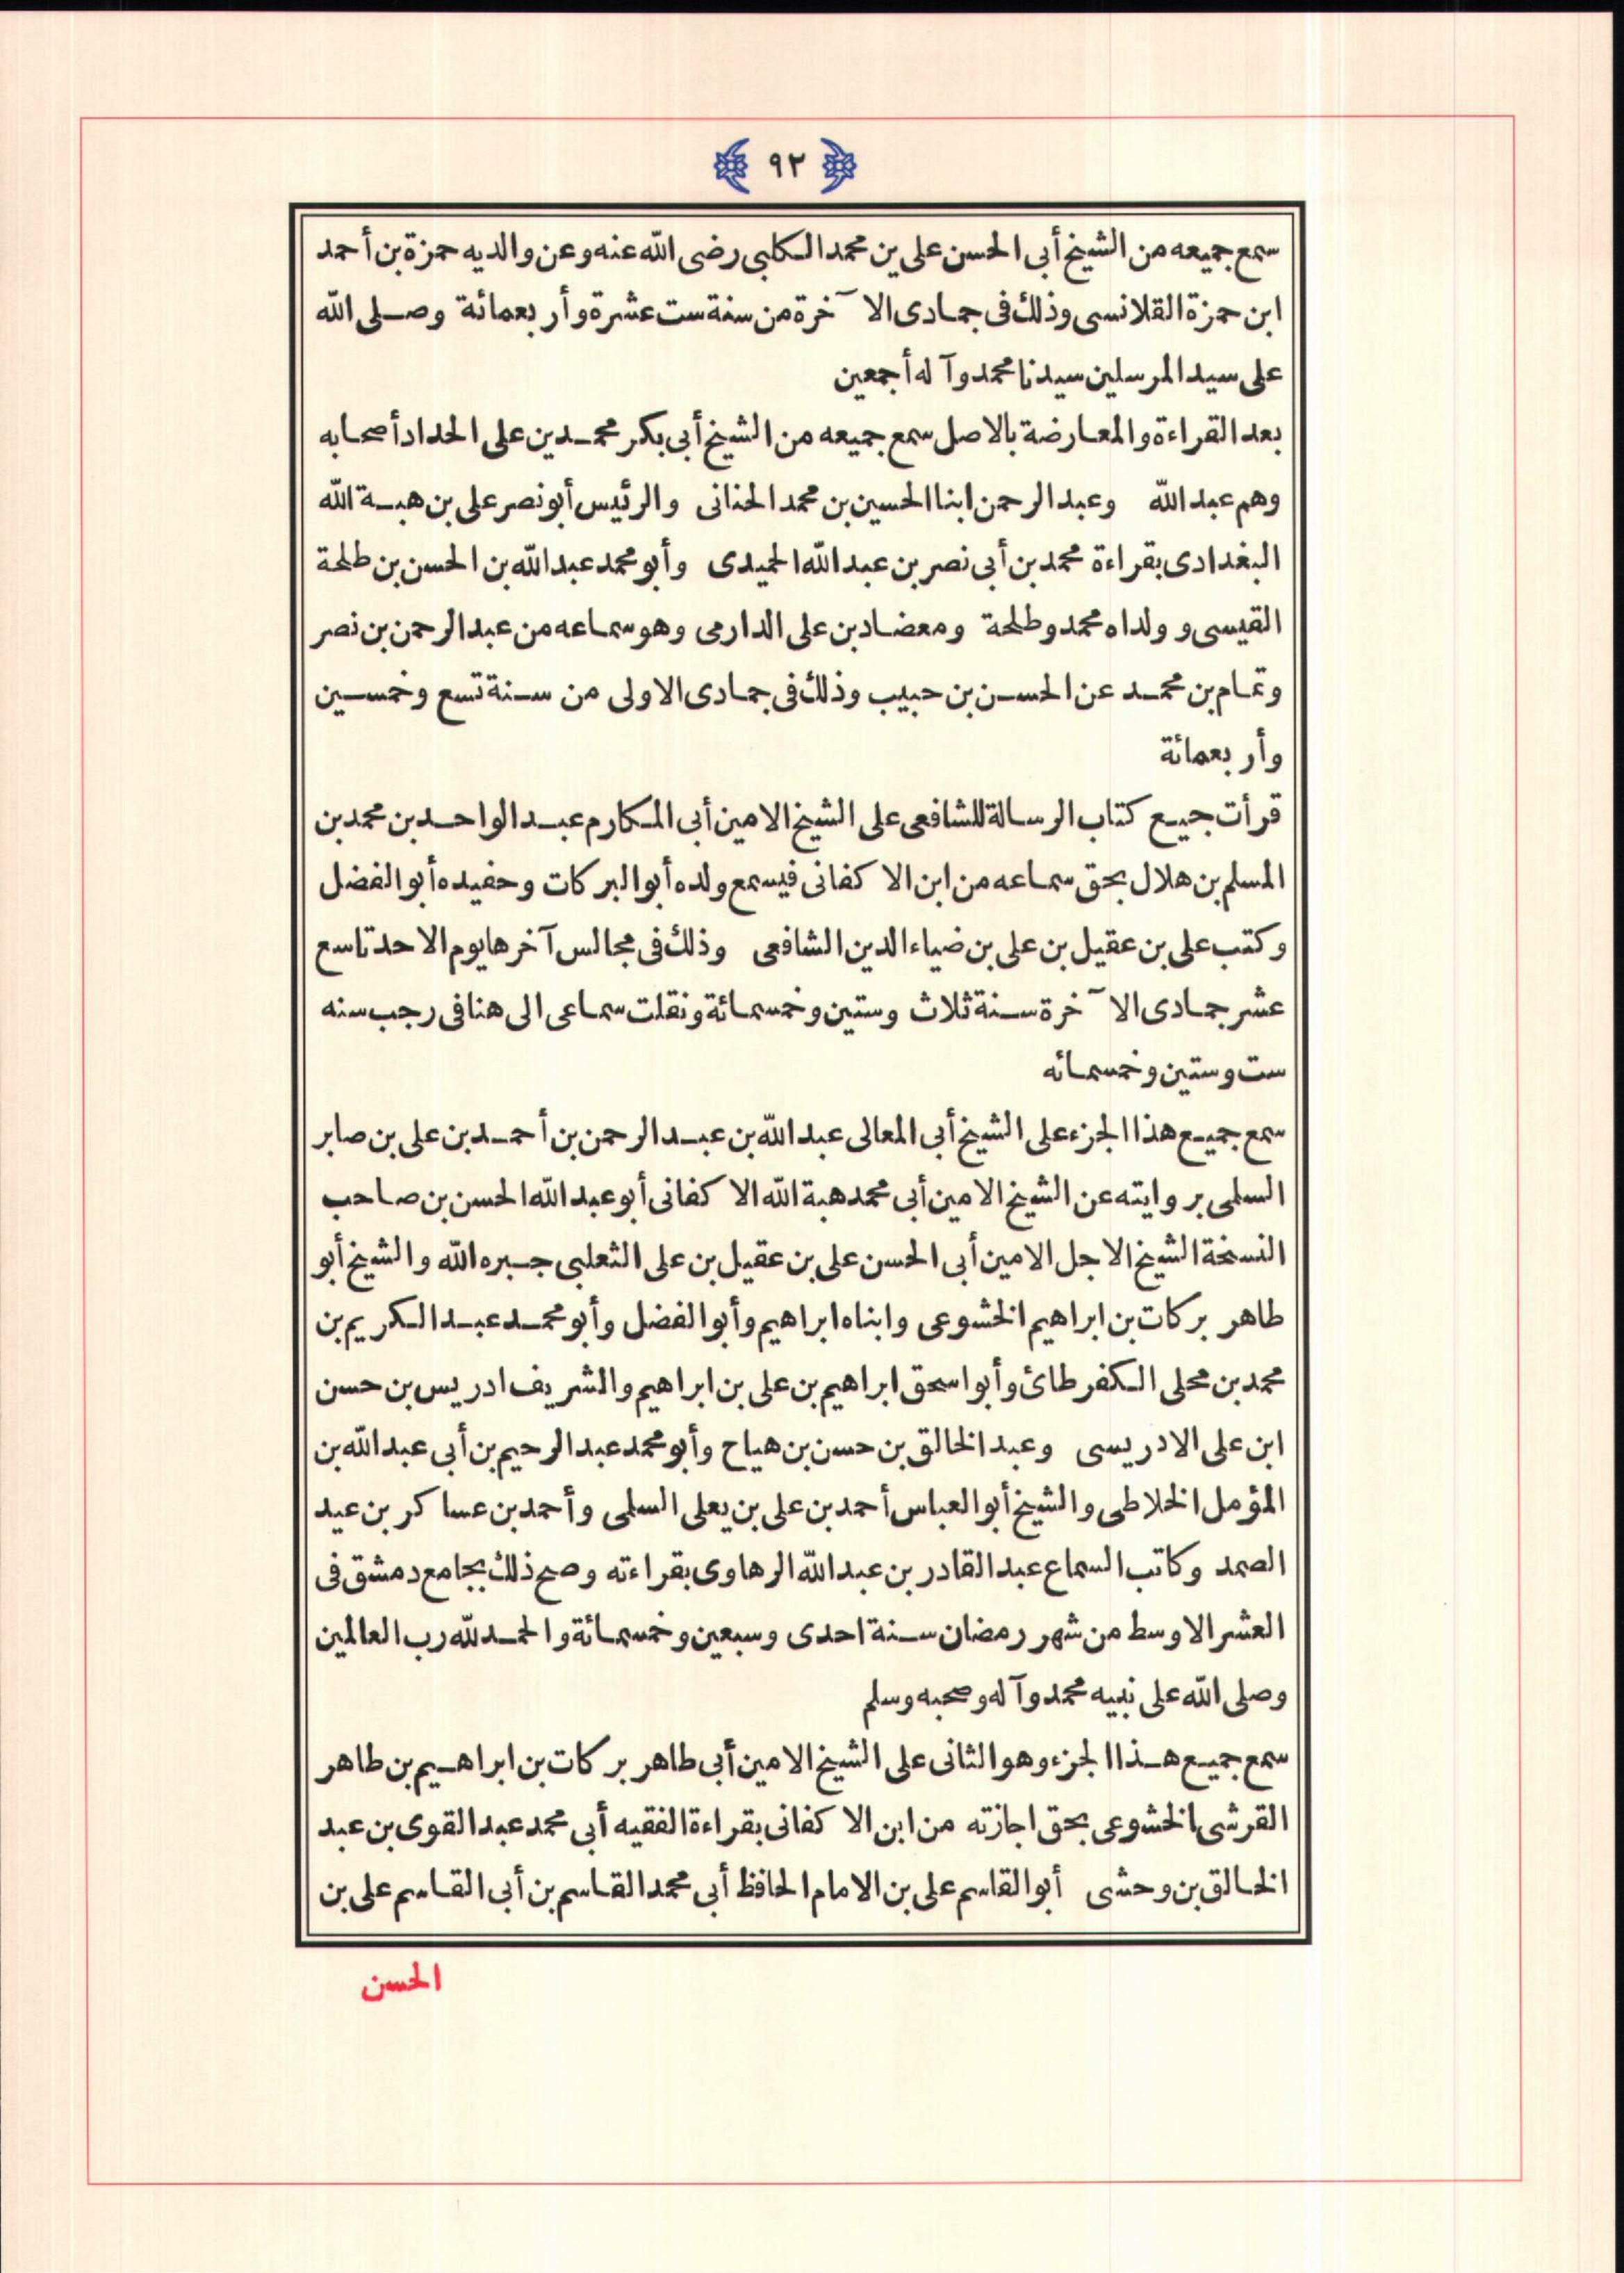 ٩٢
سمع جميعه من الشيخ أبى الحسن على بن محمد الكلبى رضى الله عنه وعن والديه حمزة بن أحمد
ابن حمزة القلانسى وذلك فى جمادى الآخرة من سنة ست عشرة وأربعمائة وصلى الله
على سيد المرسلين سيدنا محمد وآله أجمعين
بعد القراءة والمعارضة بالاصل سمع جميعه من الشيخ أبى بكر محمد بن على الحداد أصحابه
وهم عبد الله وعبد الرحمن ابنا الحسين بن محمد الحنانى والرئيس أبو نصر على بن هبة الله
البغدادى بقراءة محمد بن أبى نصر بن عبد الله الحميدى وأبو محمد عبد الله بن الحسن بن طلحة
القيسى وولداه محمد وطلحة ومعضاد بن على الدارمى وهو سماعه من عبد الرحمن بن نصر
وتمام بن محمد عن الحسن بن حبيب وذلك فى جمادى الاولى من سنة تسع وخمسين
وأربعمائة
قرأت جميع كتاب الرسالة للشافعى على الشيخ الامين أبى المكارم عبد الواحد بن محمد بن
المسلم بن هلال بحق سماعه من ابن الاكفانى فيسمع ولده أبو البركات وحفيده أبو الفضل
وكتب على بن عقيل بن على بن ضياء الدين الشافعى وذلك فى مجالس آخرها يوم الاحد تاسع
عشر جمادى الآخرة سنة ثلاث وستين وخمسمائة ونقلت سماعى الى هنا فى رجب سنه
ست وستين وخمسمائه
سمع جميع هذا الجزء على الشيخ أبى المعالى عبد الله بن عبد الرحمن بن أحمد بن على بن صابر
السلمى بروايته عن الشيخ الامين أبى محمد هبة الله الاكفانى أبو عبد الله الحسن بن صاحب
النسخة الشيخ الاجل الامين أبى الحسن على بن عقيل بن على الثعلبى جبره الله والشيخ أبو
طاهر بركات بن ابراهيم الخشوعى وابناه ابراهيم وأبو الفضل وأبو محمد عبد الكريم بن
محمد بن محلى الكفرطائ وأبو اسحق ابراهيم بن على بن ابراهيم والشريف ادريس بن حسن
ابن على الادريسى وعبد الخالق بن حسن بن هياج وأبو محمد عبد الرحيم بن أبى عبد الله بن
المؤمل الخلاطى والشيخ أبو العباس أحمد بن على بن يعلى السلمى وأحمد بن عساكر بن عبد
الصمد وكاتب السماع عبد القادر بن عبد الله الرهاوى بقراءته وصح ذلك بجامع دمشق فى
العشر الاوسط من شهر رمضان سنة احدى وسبعين وخمسمائة والحمد لله رب العالمين
وصلى الله على نبيه محمد وآله وصحبه وسلم
سمع جميع هذا الجزء وهو الثانى على الشيخ الامين أبى طاهر بركات بن ابراهيم بن طاهر
القرشى الخشوعى بحق اجازته من ابن الاكفانى بقراءة الفقيه أبى محمد عبد القوى بن عبد
الخالق بن وحشى أبو القاسم على بن الامام الحافظ أبى محمد القاسم بن أبى القاسم على بن
الحسن